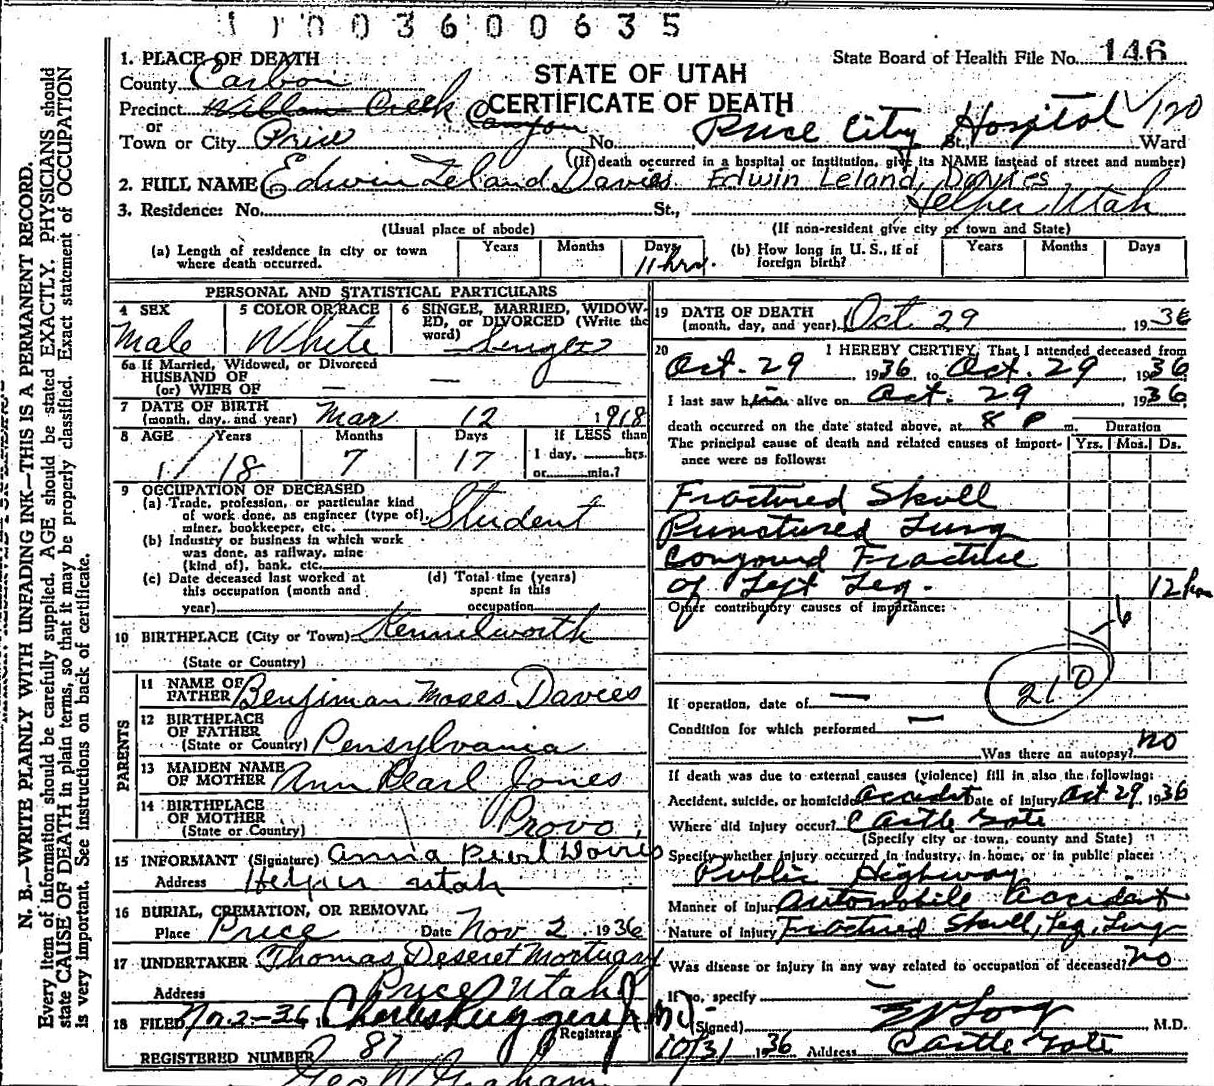 1 1 0 0 3 6 0 0 6 3 5
1. PLACE OF DEATH
County Carbon
State Board of Health File No. 146
STATE OF UTAH
CERTIFICATE OF DEATH
Precinct Willow Creek Canyon
or
Town or City Price No. Price City Hospital St., Ward
√120
(If death occurred in a hospital or institution, give its NAME instead of street and number)
2. FULL NAME Edwin Leland Davies Edwin Leland Davies
3. Residence: No. St., Helper Utah
(Usual place of abode) (If non-resident give city or town and State)
(a) Length of residence in city or town where death occurred. Years Months Days 11 hrs.
(b) How long in U. S., if of foreign birth? Years Months Days
PERSONAL AND STATISTICAL PARTICULARS
4 SEX Male
5 COLOR OR RACE White
6 SINGLE, MARRIED, WIDOWED, or DIVORCED (Write the word) Single
6a If Married, Widowed, or Divorced
HUSBAND OF
(or) WIFE OF — — —
7 DATE OF BIRTH
(month, day, and year) Mar 12 1918
8 AGE Years 18 Months 7 Days 17
If LESS than
1 day, hrs.
or min.?
9 OCCUPATION OF DECEASED
(a) Trade, profession, or particular kind
of work done, as engineer (type of),
miner, bookkeeper, etc. Student
(b) Industry or business in which work
was done, as railway, mine
(kind of), bank, etc.
(c) Date deceased last worked at
this occupation (month and
year)
(d) Total time (years)
spent in this
occupation
10 BIRTHPLACE (City or Town) Kennilworth
(State or Country)
PARENTS
11 NAME OF FATHER Benjiman Moses Davies
12 BIRTHPLACE OF FATHER
(State or Country) Pensylvania
13 MAIDEN NAME OF MOTHER Ann Pearl Jones
14 BIRTHPLACE OF MOTHER
(State or Country) Provo
15 INFORMANT (Signature) Anna Pearl Davies
Address Helper Utah
16 BURIAL, CREMATION, OR REMOVAL
Place Price Date Nov 2 1936
17 UNDERTAKER Thomas Deseret Mortuary
Address Price Utah
18 FILED Nov 2-36 Charles Ruggeri Jr MD
Registrar
REGISTERED NUMBER 87
Geo W Graham
19 DATE OF DEATH
(month, day, and year) Oct. 29 1936
20 I HEREBY CERTIFY, That I attended deceased from
Oct. 29 1936 to Oct. 29 1936
I last saw him alive on Oct. 29 1936
death occurred on the date stated above, at 8 P m. Duration
The principal cause of death and related causes of importance were as follows: Yrs. Mos. Ds.
Fractured Skull
Punctured Lung
Compound Fracture
of Left Leg. 12 hrs
Other contributory causes of importance:
210
If operation, date of —
Condition for which performed —
Was there an autopsy? no
If death was due to external causes (violence) fill in also the following:
Accident, suicide, or homicide Accident Date of injury Oct 29 1936
Where did injury occur? Castle Gate
(Specify city or town, county and State)
Specify whether injury occurred in industry, in home, or in public place:
Public Highway
Manner of injury Automobile Accident
Nature of injury Fractured Skull, Leg, Lung
Was disease or injury in any way related to occupation of deceased? no
If so, specify
(Signed) M.D.
10/31 1936 Address Castle Gate
N. B.—WRITE PLAINLY WITH UNFADING INK—THIS IS A PERMANENT RECORD.
Every item of information should be carefully supplied. AGE should be stated EXACTLY. PHYSICIANS should
state CAUSE OF DEATH in plain terms, so that it may be properly classified. Exact statement of OCCUPATION
is very important. See instructions on back of certificate.